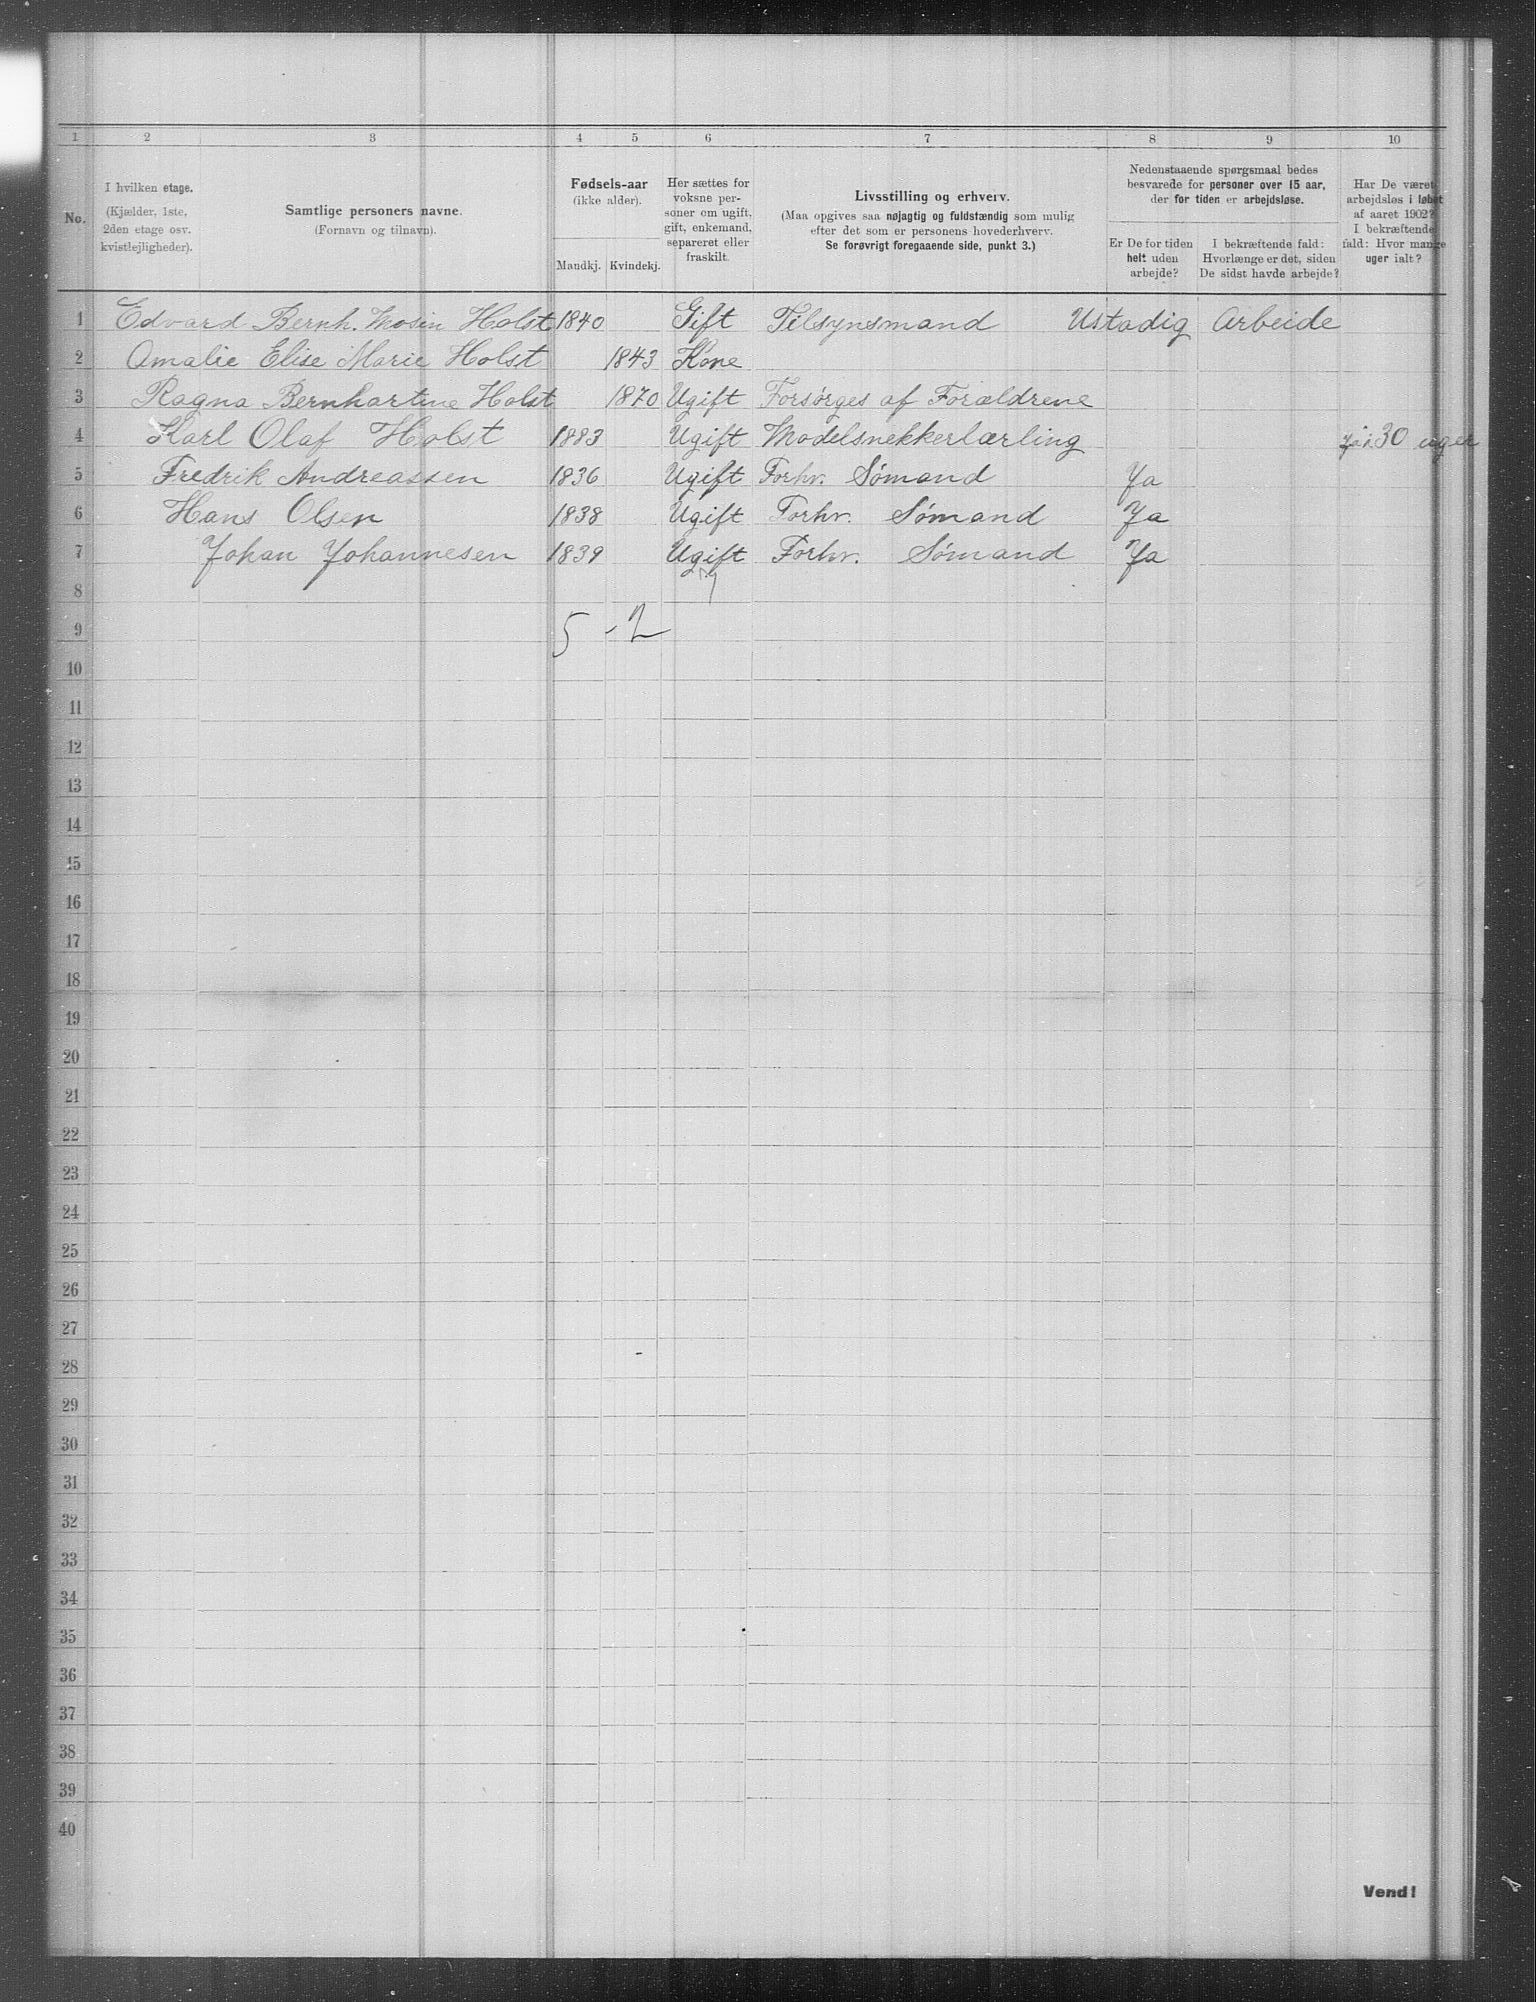 1 2 3 4 5 6 7 8 9 10
No.
I hvilken etage.
(Kjælder, 1ste,
2den etage osv.
kvistlejligheder).
Samtlige personers navne.
(Fornavn og tilnavn).
Fødsels-aar
(ikke alder).
Mandkj. Kvindekj.
Her sættes for
voksne per-
soner om ugift,
gift, enkemand,
separeret eller
fraskilt.
Livsstilling og erhverv.
(Maa opgives saa nøjagtig og fuldstændig som mulig
efter det som er personens hovederhverv.
Se forøvrigt foregaaende side, punkt 3.)
Nedenstaaende spørgsmaal bedes
besvarede for personer over 15 aar,
der for tiden er arbejdsløse.
Er De for tiden
helt uden
arbejde?
I bekræftende fald:
Hvorlænge er det, siden
De sidst havde arbejde?
Har De været
arbejdsløs i løbet
af aaret 1902?
I bekræftende
fald: Hvor mange
uger ialt?
1 Edvard Bernh. Mosin Holst 1840 Gift Tilsynsmand Ustadig Arbeide
2 Amalie Elise Marie Holst 1843 Kone
3 Ragna Bernhartine Holst 1870 Ugift Forsørges af Forældrene
4 Karl Olaf Holst 1883 Ugift Modelsnekkerlærling 30 uger
5 Fredrik Andreassen 1836 Ugift Forhv. Sømand Ja
6 Hans Olsen 1838 Ugift Forhv. Sømand Ja
7 Johan Johannesen 1839 Ugift Forhv. Sømand Ja
8
9 5 - 2
10
11
12
13
14
15
16
17
18
19
20
21
22
23
24
25
26
27
28
29
30
31
32
33
34
35
36
37
38
39
40
Vend!